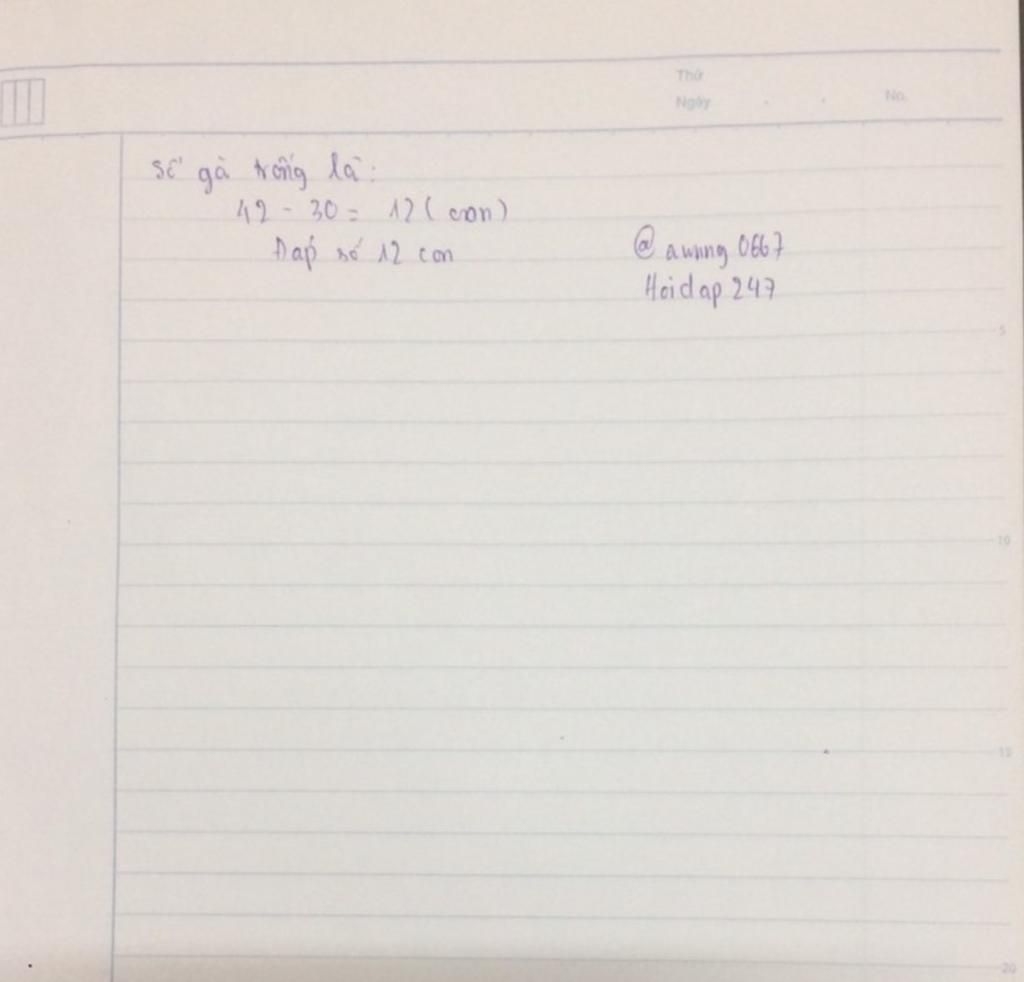 Thứ
Ngày . . No.
Số gà trống là:
42 - 30 = 12 ( con )
Đáp số 12 con
@awnng0667
Hoidap247
5
10
15
20